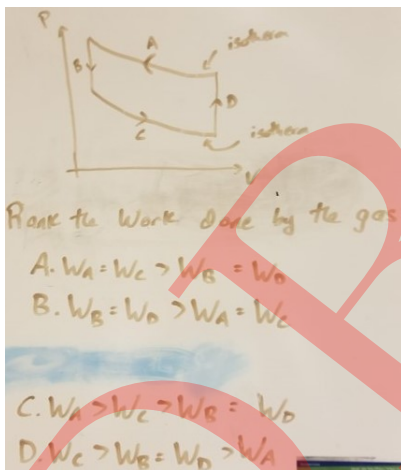 P
A
isotherm
B
D
C
isotherm
V
Rank the Work done by the gas
A. WA = WC > WB = WD
B. WB = WD > WA = WC
C. WA > WC > WB = WD
D. WC > WB = WD > WA